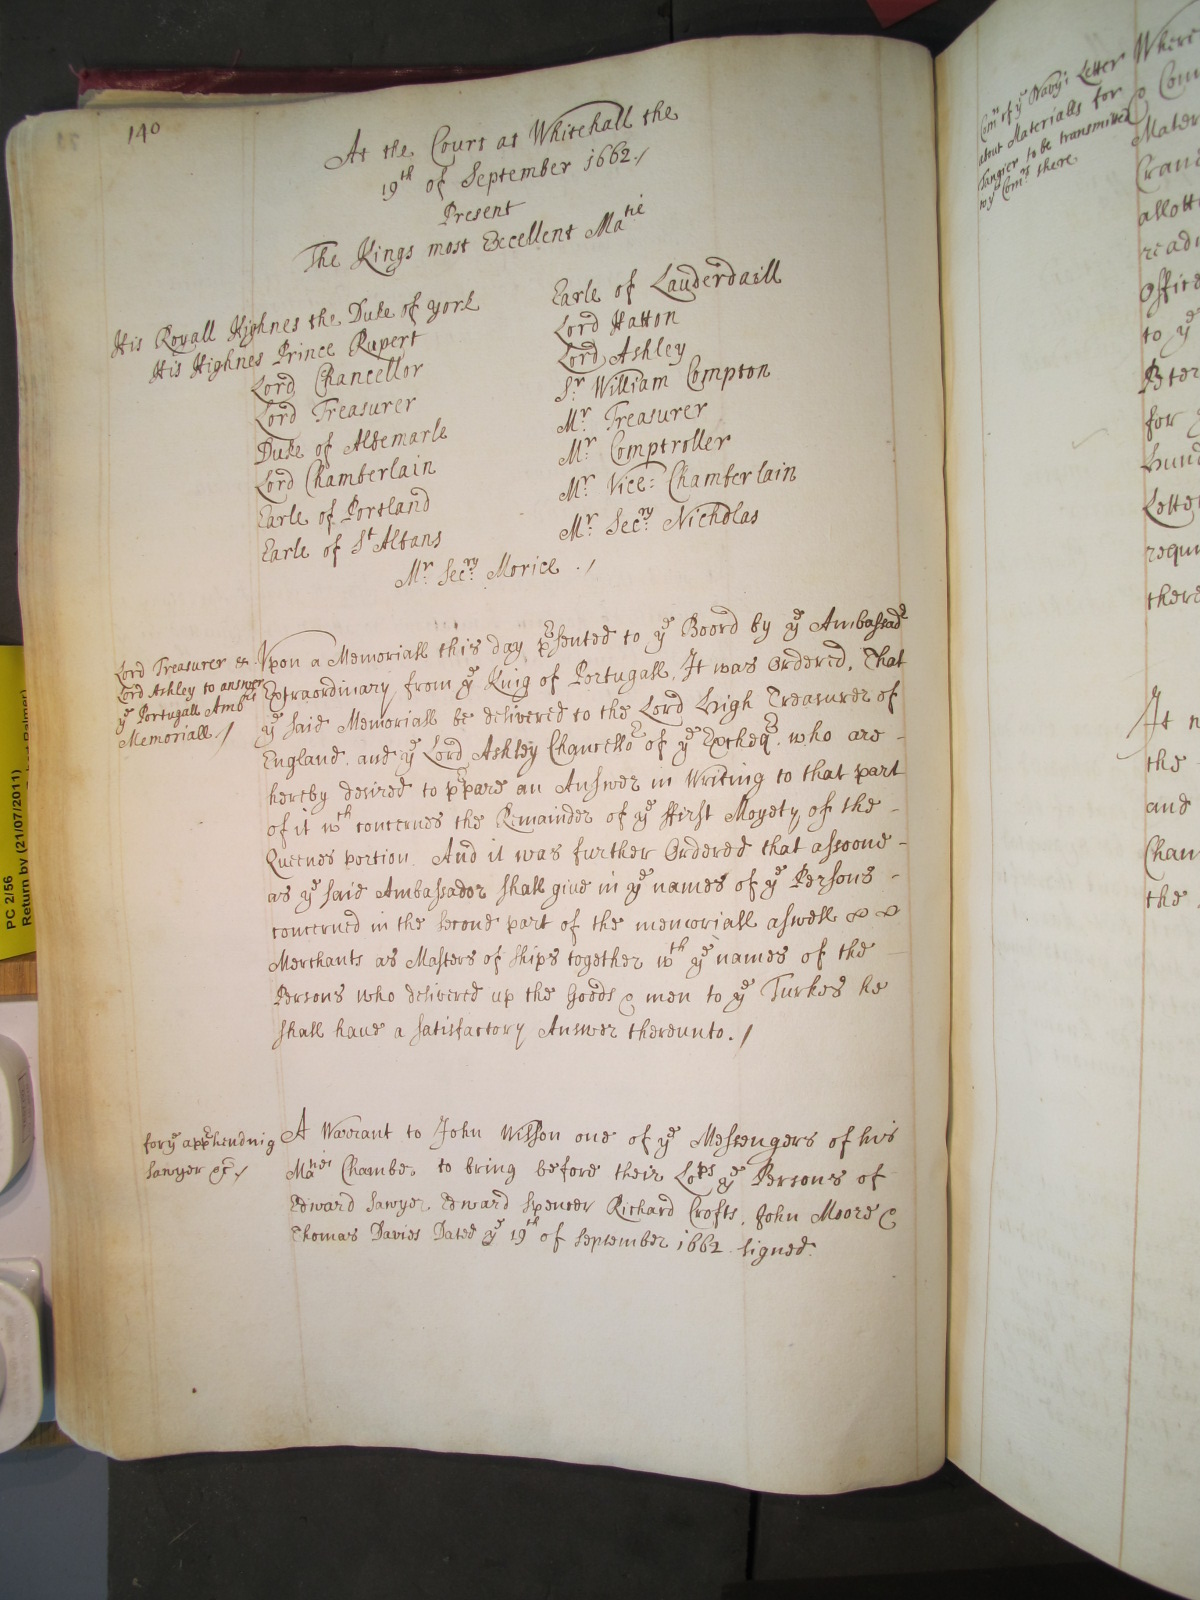 140
At the Court at Whitehall the
19th of September 1662./
Present
The Kings most Excellent Matie
His Royall Highnes the Duke of york
His Highnes Prince Rupert
Lord Chancellor
Lord Treasurer
Duke of Albemarle
Lord Chamberlain
Earle of Portland
Earle of St Albans
Earle of Lauderdaill
Lord Hatton
Lord Ashley
Sr William Compton
Mr Treasurer
Mr Comptroller
Mr Vice=Chamberlain
Mr Secry Nicholas
Mr Secry Morice ./
Lord Treasurer &
Lord Ashley to answer
ye Portugall Ambrs
Memoriall /
Vpon a Memoriall this day psented to ye Boord by ye Ambassadr
Extraordinary from ye King of Portugall, It was Ordered, That
ye said Memoriall be delivered to the Lord High Treasurer of
England, and ye Lord Ashley Chancellor of ye Excheqr, who are -
hereby desired to ppare an Answer in Writing to that part
of it wch concernes the Remainder of ye ffirst Moyety of the -
Queenes portion. And it was further Ordered that assoone -
as ye said Ambassador shall give in ye names of ye Persons -
concerned in the second part of the memoriall aswell
Merchants as Masters of ships together wth ye names of the -
Persons who delivered up the Goods & men to ye Turkes he
shall have a satisfactory Answer thereunto. /
for ye apphending
Sawyer &c /
A Warrant to John Wilson one of ye Messengers of his
Maties Chamber to bring before their Lops ye Persons of
Edward Sawyer, Edward Spencer Richard Crofts, John Moore &
Thomas Davies Dated ye 19th of September 1662 signed.
Comrs of ye Navy's Letter
about Materialls for
Tangier to be transmitted
to ye Comrs there
Where
Mater
allott
Office
to ye
Peter
for
Letter
there
It
the
and
Chan
the
PC 2/56
Return by (21/07/2011)